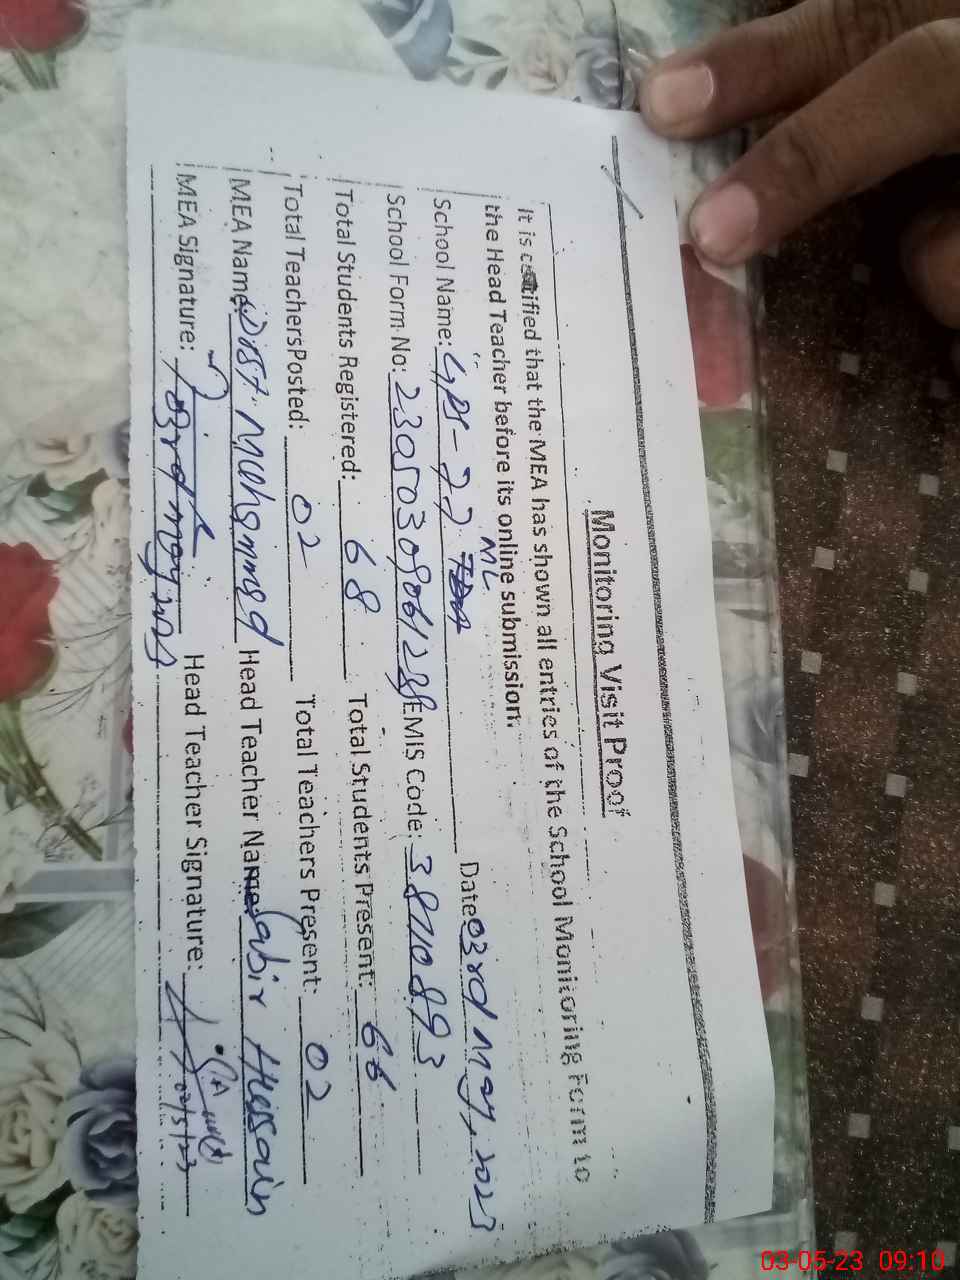 Monitoring Visit Proof
It is certified that the MEA has shown all entries of the School Monitoring Form to
the Head Teacher before its online submission.
School Name: GPS-77 ML Date 03rd May, 2023
School Form No: EMIS Code: 38710893
Total Students Registered: 68 Total Students Present: 66
Total TeachersPosted: 02 Total Teachers Present: 02
MEA Name: Dist. Muhammad Head Teacher Name: Sabir Hussain
MEA Signature: 03rd May, 2023 Head Teacher Signature:
03-05-23 09:10